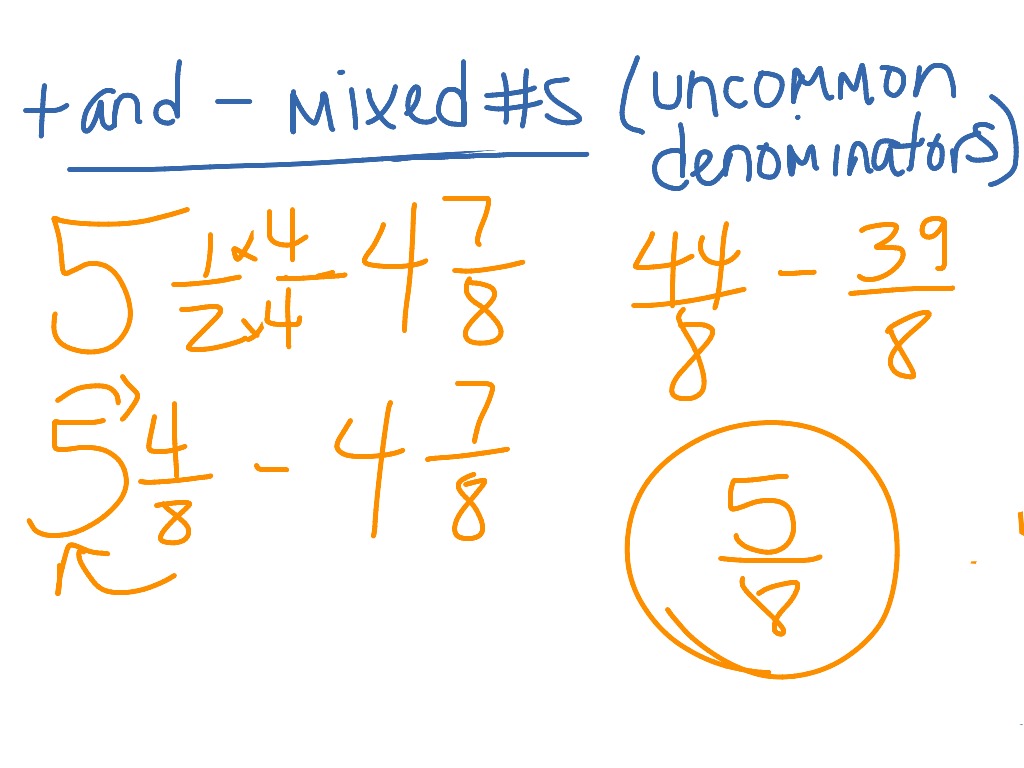 + and - mixed #s (uncommon
denominators)
5 1/2 × 4/4 - 4 7/8
44/8 - 39/8
5 4/8 - 4 7/8
5/8